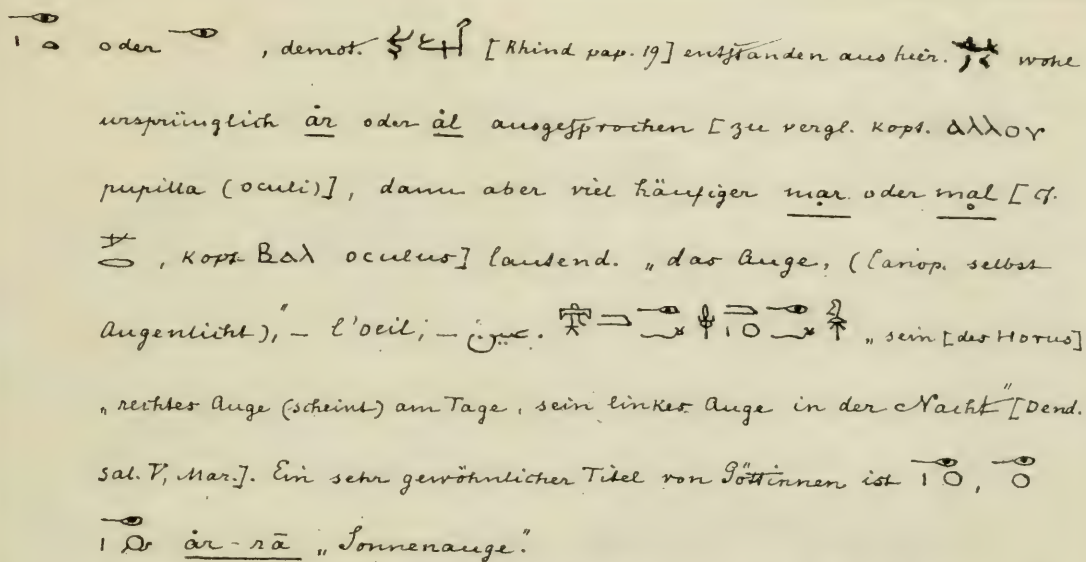 oder , demot. [Rhind pap. 19] entstanden aus hier. wohl
ursprünglich år oder ål ausgesprochen [zu vergl. kopt. ⲁⲗⲗⲟⲩ
pupilla (oculi)], dann aber viel häufiger mar oder mal [cf.
, kopt. ⲃⲁⲗ oculus] lautend. „das Auge, (Canop. selbst
Augenlicht)," – l'oeil; – عين. „sein [des Horus]
„rechtes Auge (scheint) am Tage, sein linkes Auge in der Nacht" [Dend.
sal. V, Mar.]. Ein sehr gewöhnlicher Titel von Göttinnen ist ,
år-rā „Sonnenauge".